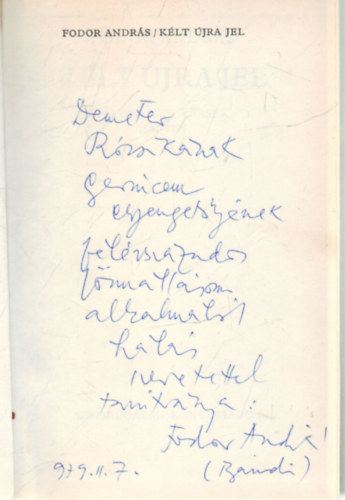 FODOR ANDRÁS / KÉLT ÚJRA JEL
Demeter
Rózsikának
gerincem
félévszázados
alkalmából
hálás
szeretettel
tanítványa:
Fodor András
(Bandi)
979. II. 7.